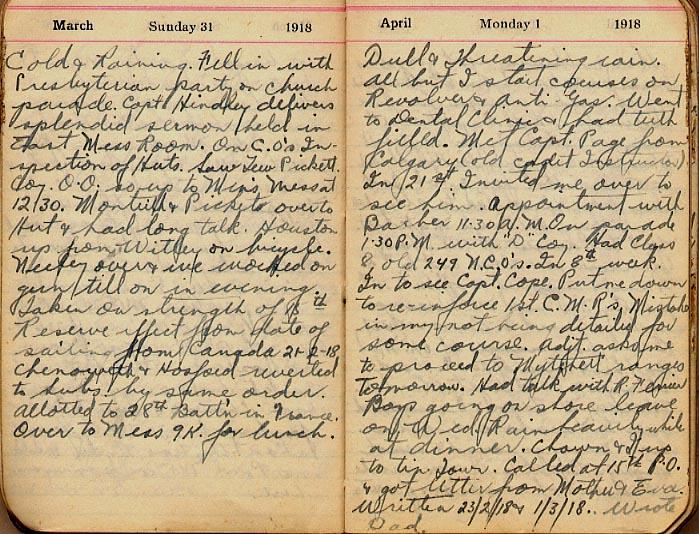 March Sunday 31 1918
Cold & Raining. Fell in with
Presbyterian party on church
parade. Capt. delivers
splendid sermon held in
East Mess Room. On C.O's In-
spection of Huts. Saw Lew Pickett.
Coy. O.O. so up to Men's Mess at
12/30. & Pickets over to
Hut & had long talk. Houston
up from Witley on bicycle.
over & we worked on
gun till on in evening.
Taken on strength of 18th
Reserve effect from date of
sailing from Canada 21-2-18
Chenoweth & reverted
to subs. by same order.
allotted to 28th Battn in France.
Over to Mess 9K. for lunch.
April Monday 1 1918
Dull & Threatening rain.
All but I start courses on
Revolver & Anti-Gas. Went
to Dental Clinic & had tuth
filled. Met Capt. Page from
Calgary (old cadit Instructor)
In 21st. Invited me over to
see him. Appointment with
Barber 11.30 A.M. On parade
1.30 P.M. with "D" Coy. Had Class
8 old 249 N.C.O's. In 8th week.
In to see Capt. Cope. Put me down
to re-inforce 1st. C.M.R's, Mistake
in my not being detailed for
some course. Adjt. asks me
to proceed to Mytchett ranges
tomorrow. Had talk with R.
Boys going on shore leave
on Wed. Rain heavily while
at dinner. Chown & I up
to tin Town. Called at 15th P.O.
& got letter from Mother & Eva.
Written 23/2/18 & 1/3/18. Wrote
Dad.